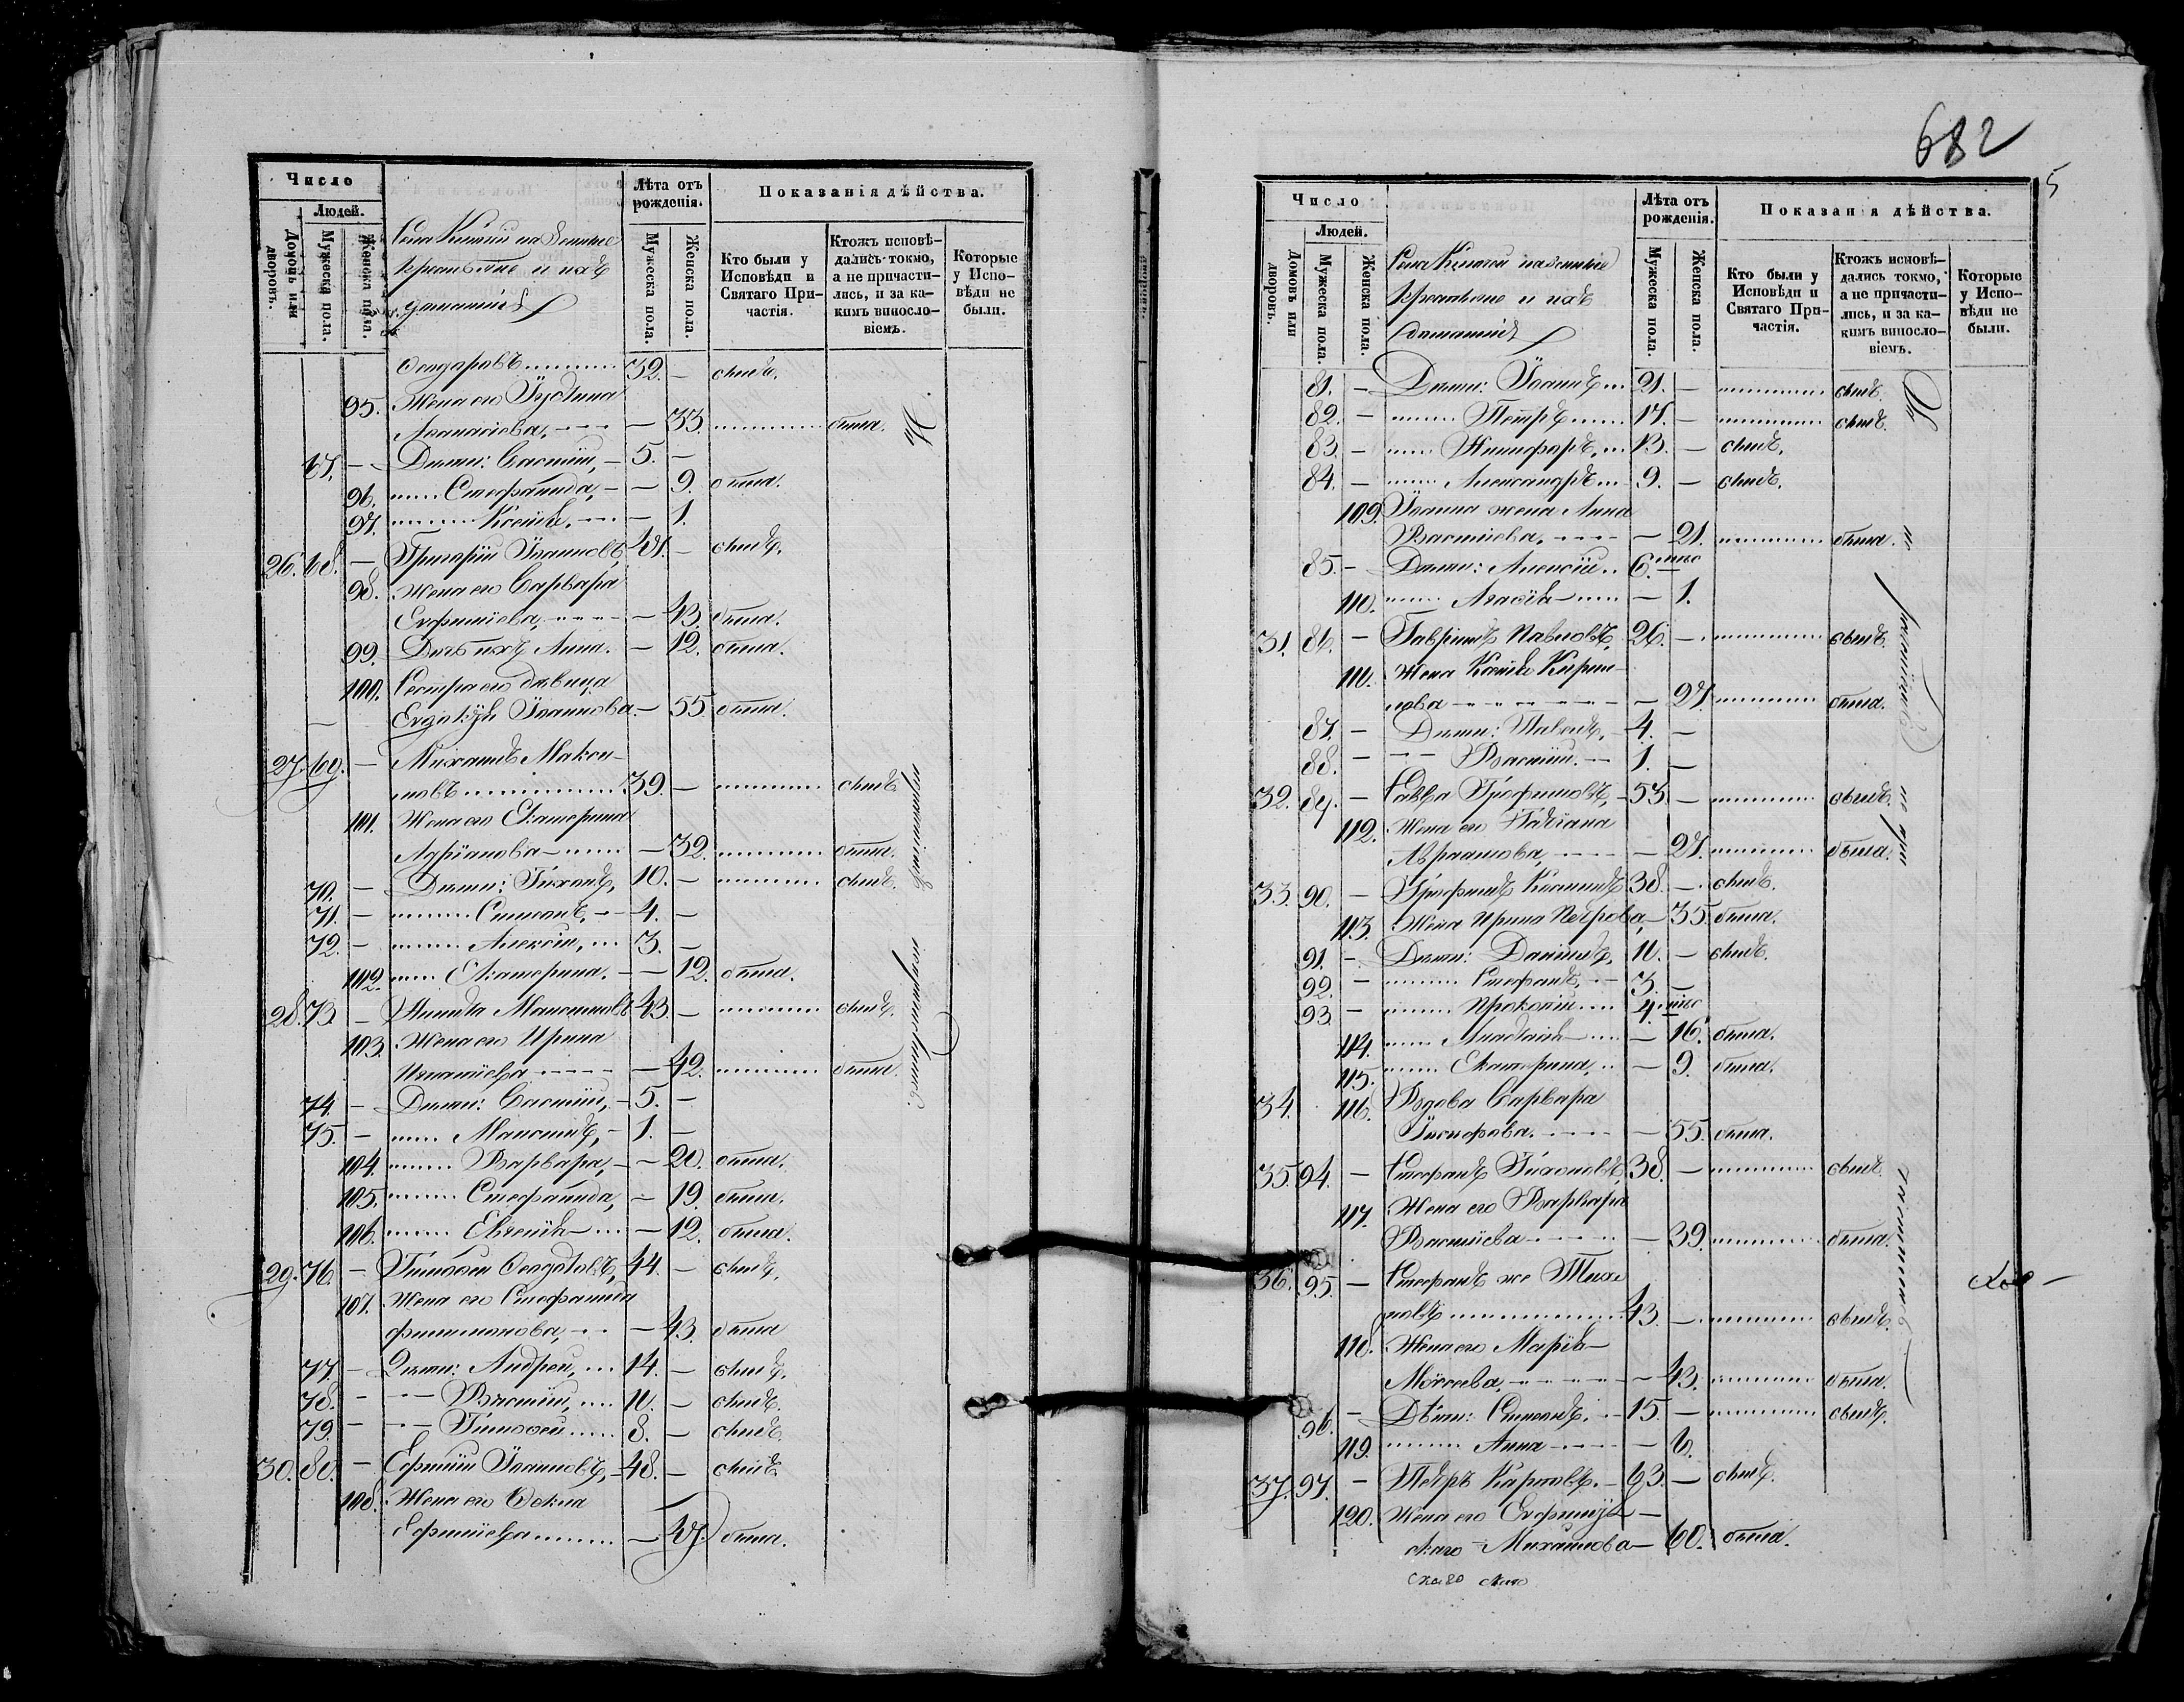 682
5
Число
Людей.
Домовъ или дворовъ.
Мужеска пола.
Женска пола.
крестьяне и ихъ
домашніе
Лѣта отъ рожденія.
Мужеска пола.
Женска пола.
Показанія дѣйства.
Кто были у Исповѣди и Святаго Причастія.
Ктожъ исповѣдались токмо, а не причастились, и за какимъ винословіемъ.
Которые у Исповѣди не были.
Ѳеодоровъ 32. – былъ.
95. Жена его Іустина
Аѳанасіева, – 33. была.
67. – Дѣти: Василій, – 5. –
96. Стефанида, – 9. была.
97. Ксенія, – 1.
26. 68. – Григорій Іоанновъ, 47. – былъ.
98. Жена его Варвара
Евфиміева, – 43. была.
99. Дочь ихъ Анна. – 12. была.
100. Сестра его дѣвица
Евдокія Іоаннова – 55. была.
27. 69. – Михаилъ Макси-
мовъ 39. – былъ
101. Жена его Екатерина
Адріанова – 32. была.
70. – Дѣти: Тихонъ, 10. – былъ.
71. – Симеонъ, 4. –
72. – Алексій, 3. –
102. Екатерина. – 12. была.
28. 73. – Никита Максимовъ 43. – былъ.
103. Жена его Ирина
Игнатіева – 42. была.
74. – Дѣти: Василій, – 5. –
75. – Максимъ, – 1. –
104. Варвара, – 20. была.
105. Стефанида, – 19. была.
106. Евгенія – 12. была.
29. 76. – Тимоѳей Ѳеодотовъ, 44. – былъ.
107. Жена его Стефанида
Филимонова, – 43. была
77. – Дѣти: Андрей, 14. – былъ.
78. – Василій, 10. – былъ.
79. – Тимоѳей 8. – былъ.
30. 80. – Ефимій Іоанновъ, – 48. – былъ
108. Жена его Ѳекла
Ефиміева – 47. была.
Число
Людей.
Домовъ или дворовъ.
Мужеска пола.
Женска пола.
крестьяне и ихъ
домашніе
Лѣта отъ рожденія.
Мужеска пола.
Женска пола.
Показанія дѣйства.
Кто были у Исповѣди и Святаго Причастія.
Ктожъ исповѣдались токмо, а не причастились, и за какимъ винословіемъ.
Которые у Исповѣди не были.
81. – Дѣти: Іоаннъ 21. – былъ.
82. – Петръ 17. – былъ.
83. – Никифоръ, 13. – былъ.
84. – Александръ 9. – былъ.
109. Іоанна жена Анна
Василіева, – 21. была.
85. – Дѣти: Алексій 6. мѣс
110. Агаѳія – 1.
31. 86. – Гавріилъ Павловъ, 26. – былъ.
111. Жена Ксенія Кирил-
лова – 27. была.
87. – Дѣти: Павелъ, – 4. –
88. – Василій. – 1. –
32. 89. – Савва Трофимовъ, – 53. – былъ.
112. Жена его Татіана
Авраамова, – 27. была.
33. 90. – Трофимъ Космичъ 38. – былъ.
113. Жена Ирина Петрова, – 35. была.
91. – Дѣти: Даніилъ, 11. – былъ.
92. – Стефанъ, 3. –
93. – Прокопій 4. мѣс
114. Анастасія – 16. была.
115. Екатерина, – 9. была.
34. 116. Вдова Варвара
– 55. была.
35. 94. – Стефанъ Тихоновъ, 38. – былъ.
117. Жена его Варвара
Василіева – 39. была.
36. 95. – Стефанъ же Тихо
новъ 43. – былъ.
118. Жена его Марія
Моѵсеева, – 43. была.
96. – Дѣти: Симеонъ, – 15. – былъ.
119. Анна – 6.
37. 97. – Петръ Карповъ. – 63. – былъ.
120. Жена его Евфимія –
Михайлова – 60. была.